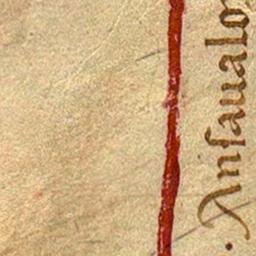 · Ansaualo